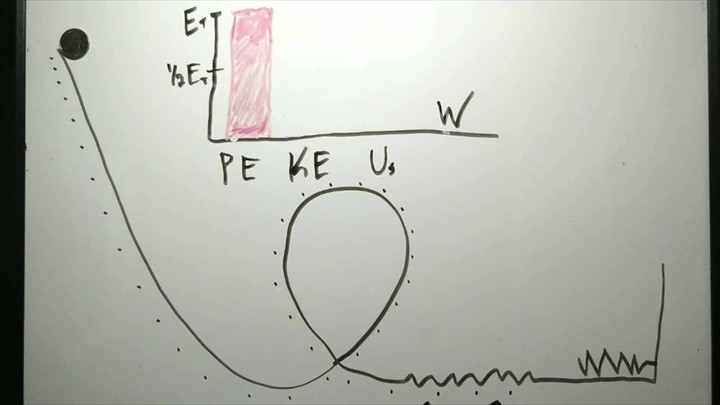 E_T
½E_T
W
PE KE U_s